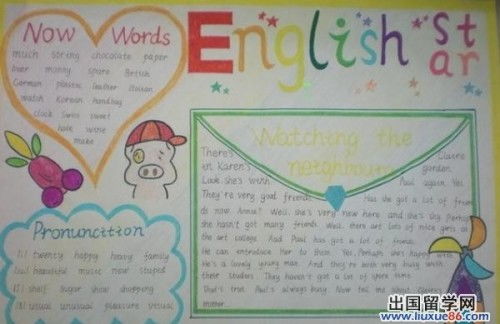 Now Words
much spring chocolate paper
over money spare British
German plastic leather Italian
watch Korean handbag
clock Swiss sweet
hate wine
make
English star
Watching the
neighbours
There's Claire
in Karen's garden.
Look she's with Paul again Yes.
They're very good friends. Has she got a lot of frien
ds now. Anna? Well, she's very new here and she's shy. Perhaps
she hasn't got many friends. Well, there are lots of nice girls at
the art college. And Paul has got a lot of friends.
He can introduce Her to them. Yes. Perhaps she's happy with
He's a lovely young man. And they're both very busy with
their studies. They haven't got a lot of spare time.
That's true. Paul's always busy. Now tell me about
mother.
Pronuncition
[ʌ] twenty happy heavy family
[u:] beautiful music new stupid
[ʃ] shelf sugar show shopping
[ʒ] usual unusual pleasure visual
出国留学网
www.liuxue86.com